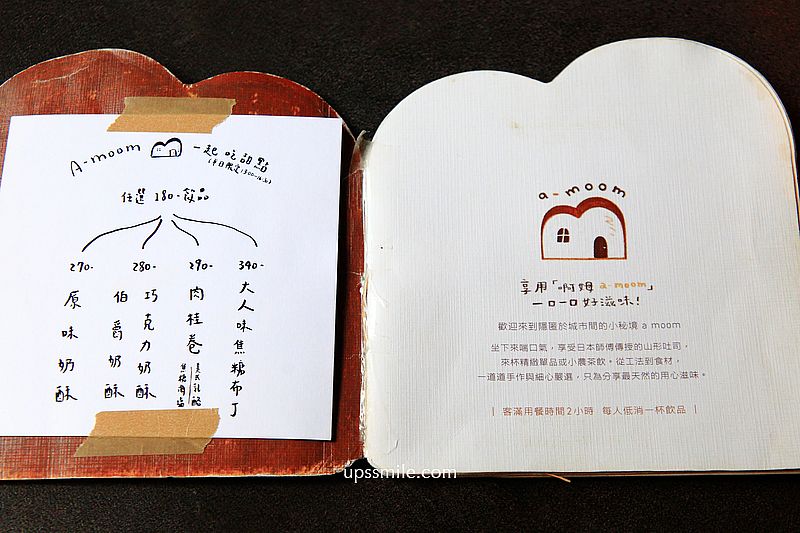 A-moom 一起吃甜點
任選 180.飲品
270- 280- 290- 340-
原味奶酥
伯爵奶酥
巧克力奶酥
肉桂卷
美式乳酪
焦糖海鹽
大人味焦糖布丁
a-moom
享用「啊姆 a-moom」
一口一口好滋味!
歡迎來到隱匿於城市間的小秘境 a moom
坐下來喘口氣,享受日本師傅傳授的山形吐司,
來杯精緻單品或小農茶飲。從工法到食材,
一道道手作與細心嚴選,只為分享最天然的用心滋味。
| 客滿用餐時間2小時 每人低消一杯飲品 |
upssmile.com